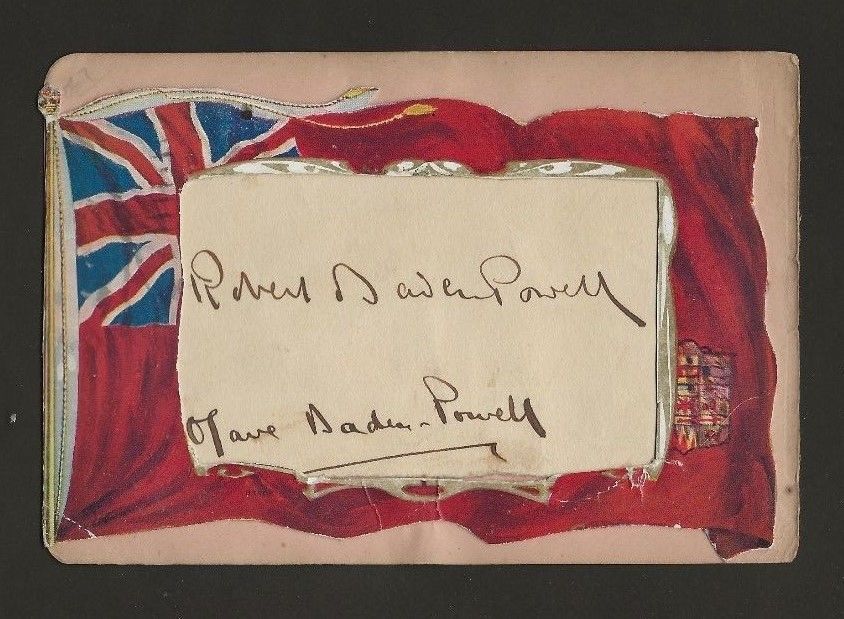 Robert Baden Powell
Olave Baden-Powell